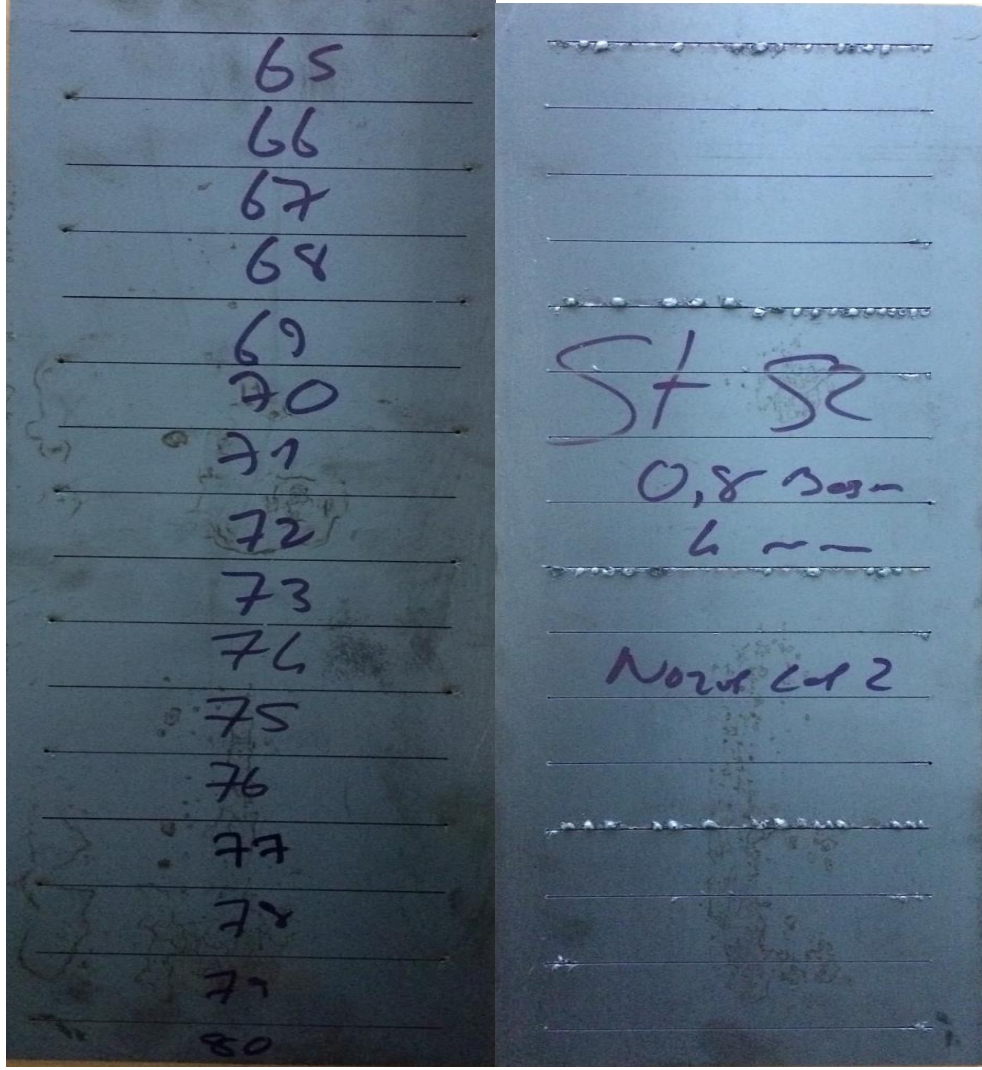 65
66
67
68
69
70
71
72
73
74
75
76
77
78
79
80
St 52
0,8
4 mm
Nozul
2